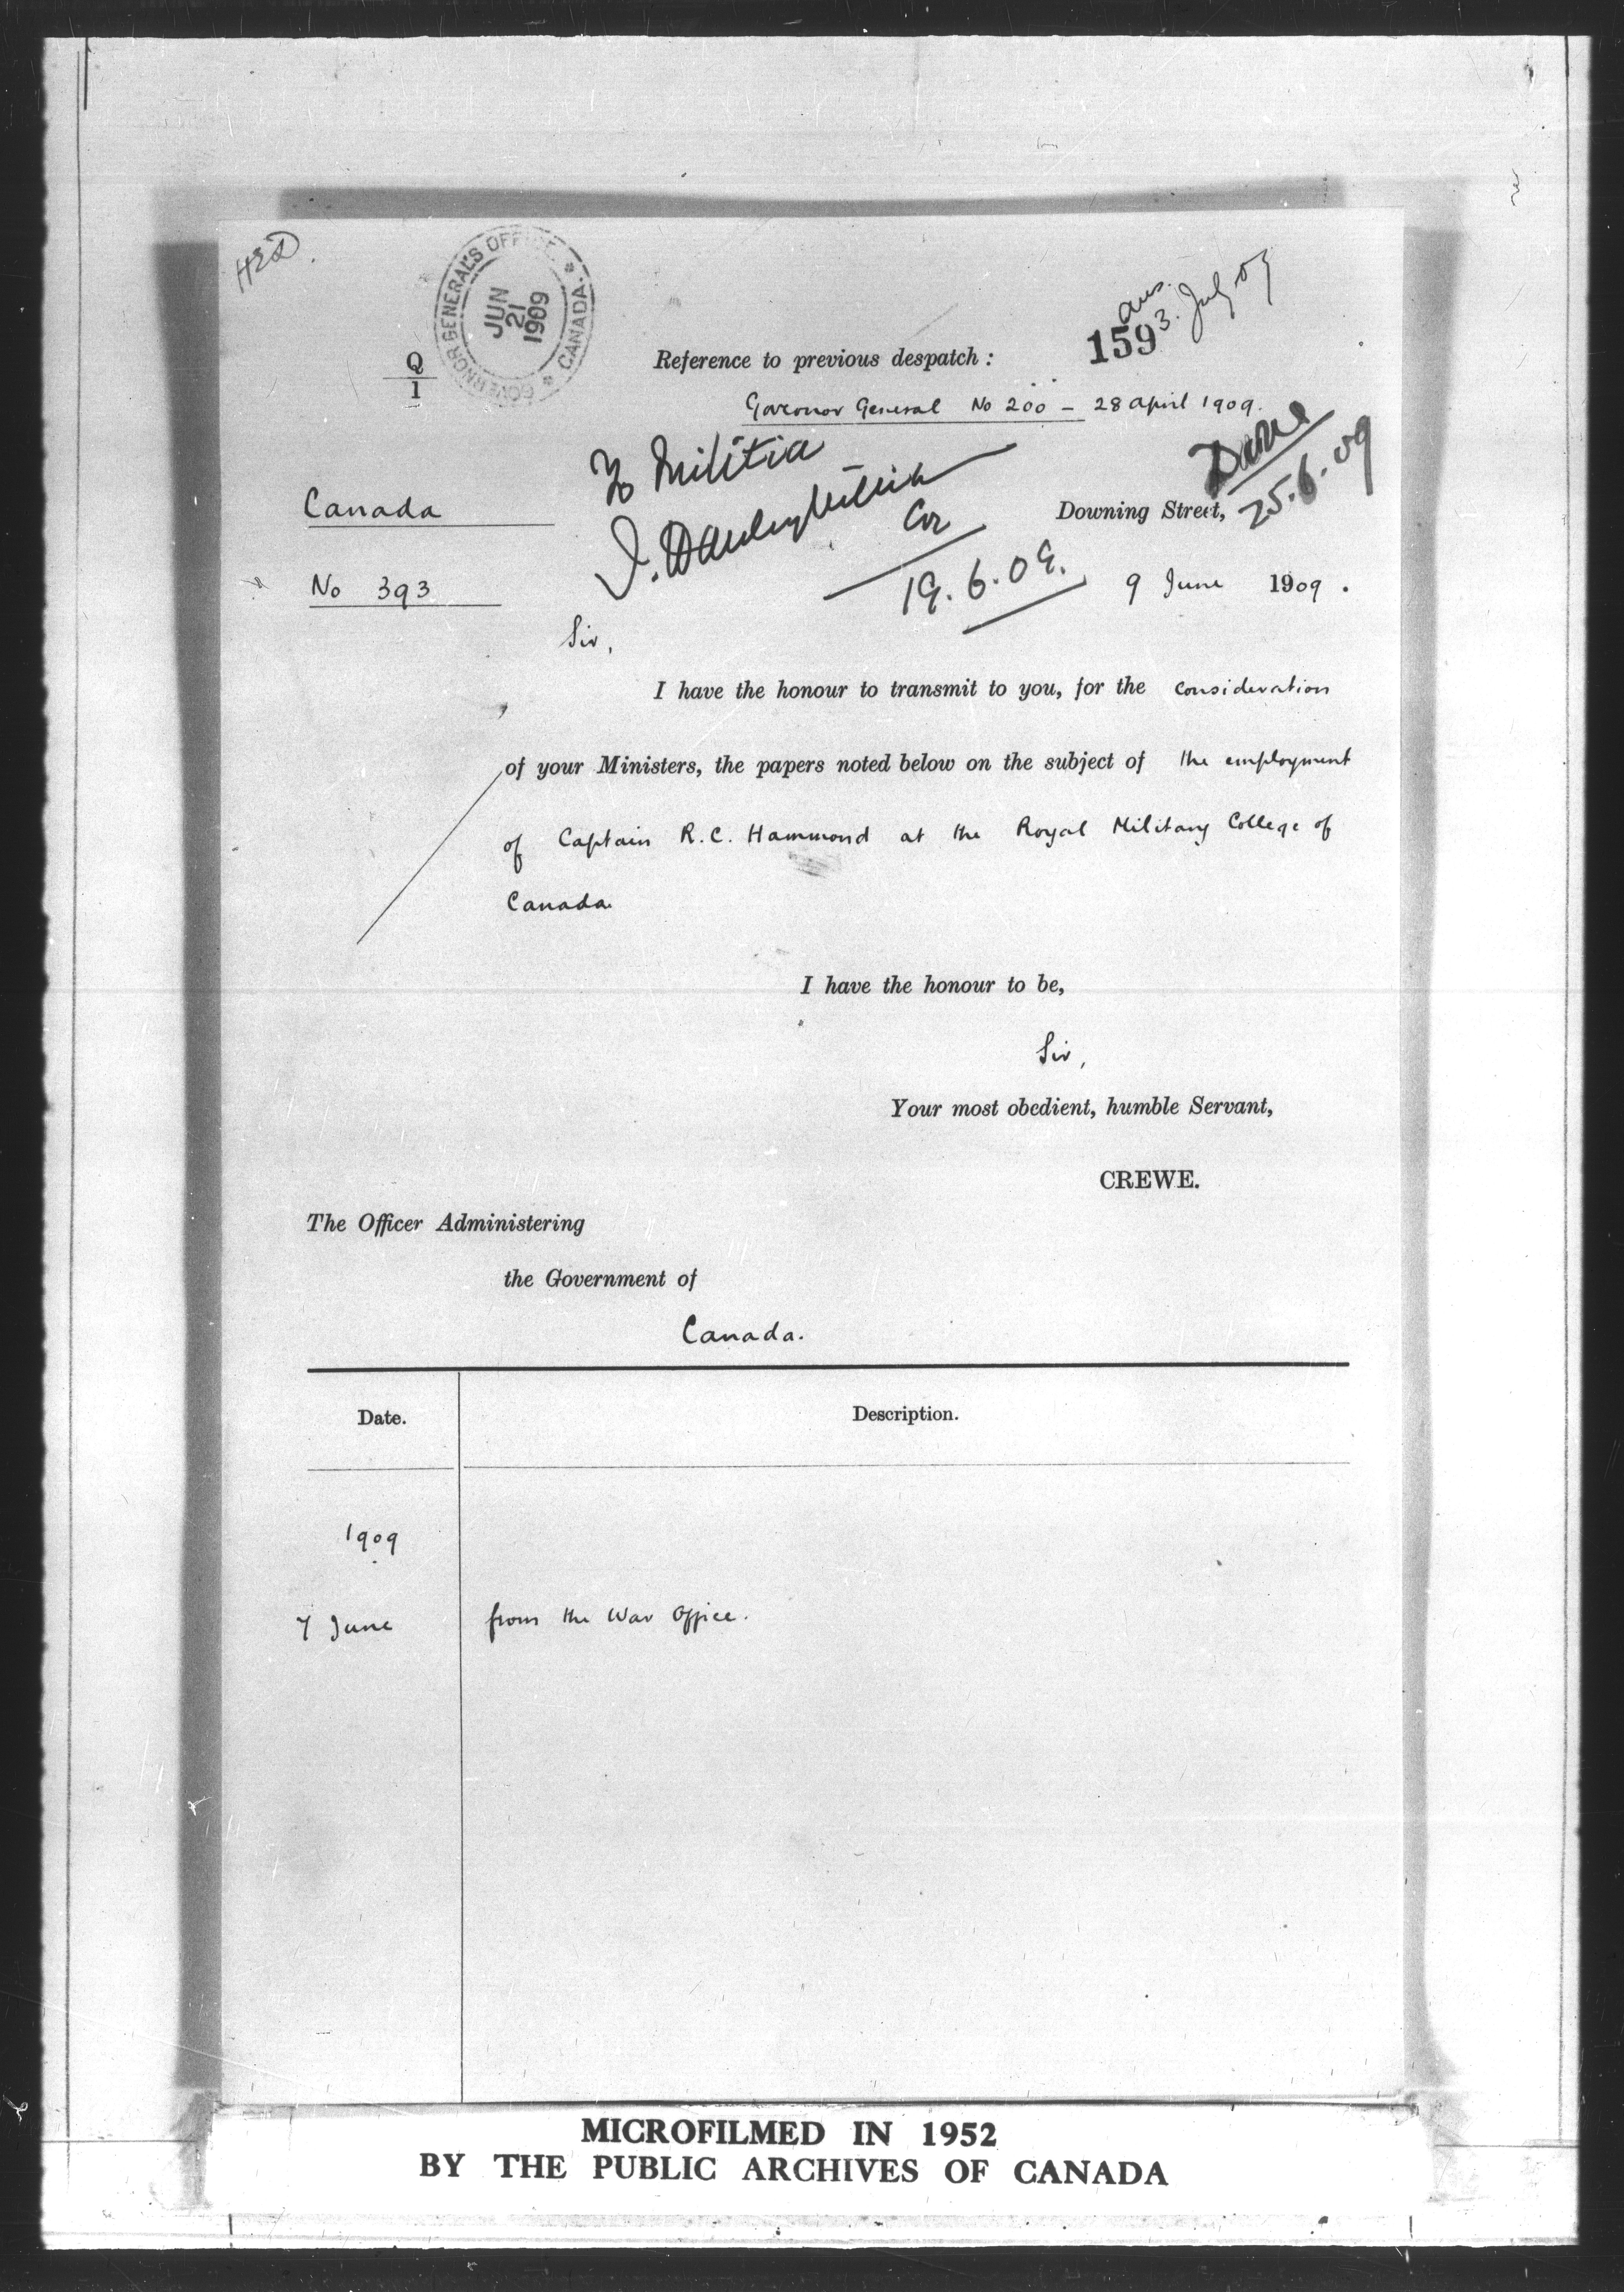 HED.
GOVERNOR GENERAL'S OFFICE
CANADA.
JUN
21
1909
Q
1
Reference to previous despatch :
159
ans.
3. July 09
Governor General No 200 - 28 April 1909.
To Militia
19.6.09.
Done
25.6.09
Canada
Downing Street,
No 393
9 June 1909.
Sir,
I have the honour to transmit to you, for the consideration
of your Ministers, the papers noted below on the subject of the employment
of Captain R.C. Hammond at the Royal Military College of
Canada.
I have the honour to be,
Sir,
Your most obedient, humble Servant,
CREWE.
The Officer Administering
the Government of
Canada.
Date.
Description.
1909
7 June
from the War Office.
MICROFILMED IN 1952
BY THE PUBLIC ARCHIVES OF CANADA